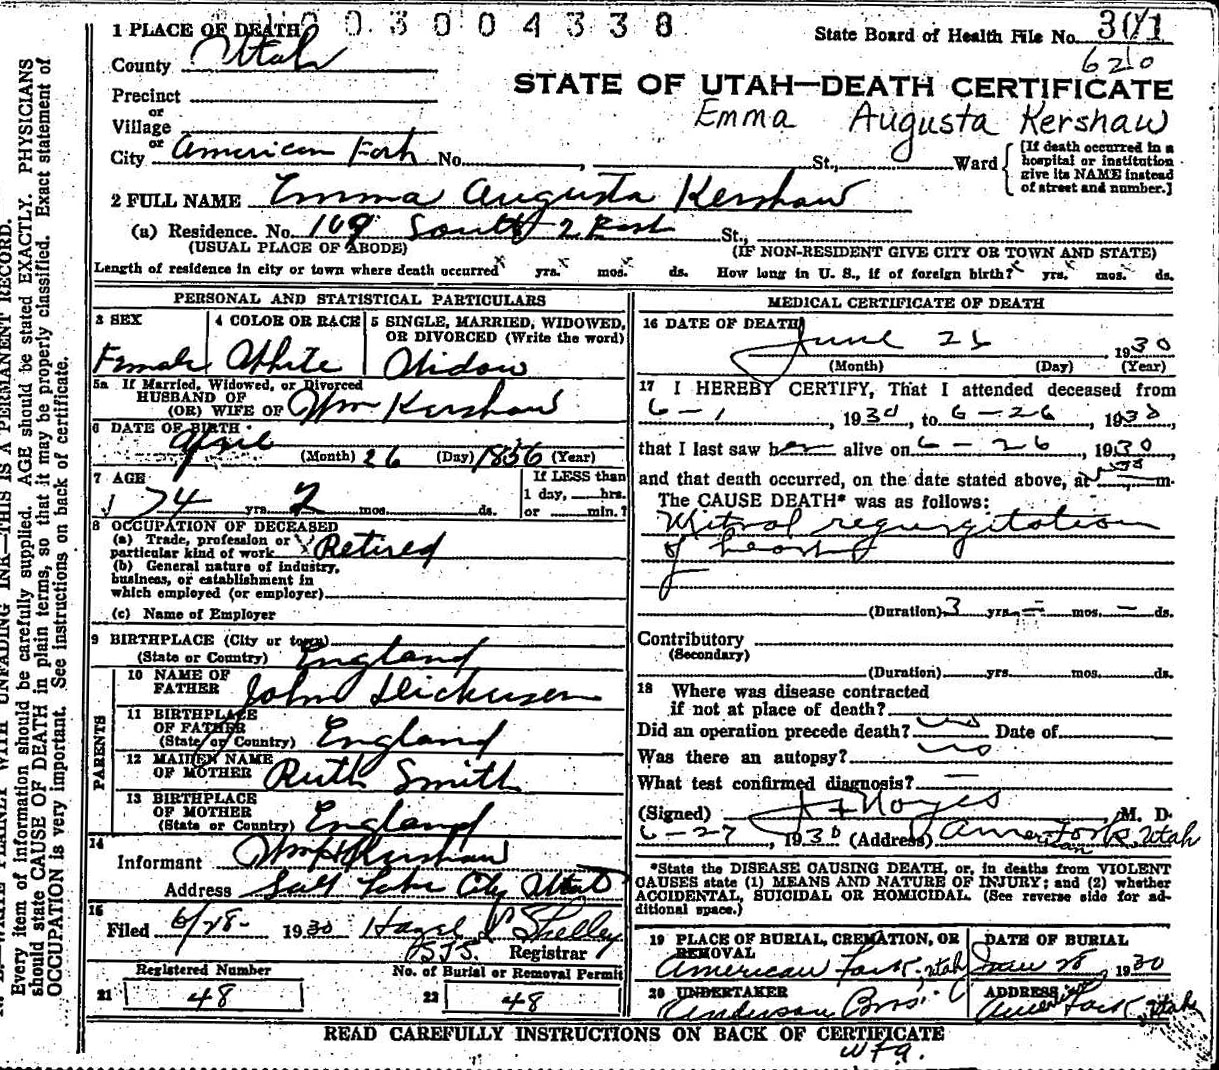 1003004338
1 PLACE OF DEATH
State Board of Health File No. 301
County Utah
620
STATE OF UTAH—DEATH CERTIFICATE
Precinct
or
Village
Emma Augusta Kershaw
or
City American Fork No. , St., Ward
[If death occurred in a hospital or institution give its NAME instead of street and number.]
2 FULL NAME Emma Augusta Kershaw
(a) Residence. No. 109 South 2 East St.,
(USUAL PLACE OF ABODE) (IF NON-RESIDENT GIVE CITY OR TOWN AND STATE)
Length of residence in city or town where death occurred x yrs. x mos. x ds. How long in U. S., if of foreign birth? x yrs. x mos. ds.
PERSONAL AND STATISTICAL PARTICULARS
3 SEX
Female
4 COLOR OR RACE
White
5 SINGLE, MARRIED, WIDOWED,
OR DIVORCED (Write the word)
Widow
5a If Married, Widowed, or Divorced
HUSBAND OF
(OR) WIFE OF Wm Kershaw
6 DATE OF BIRTH
April
(Month) 26 (Day) 1856 (Year)
7 AGE
74 yrs. 2 mos. ds.
If LESS than
1 day, hrs.
or min.?
8 OCCUPATION OF DECEASED
(a) Trade, profession or
particular kind of work Retired
(b) General nature of industry,
business, or establishment in
which employed (or employer)
(c) Name of Employer
9 BIRTHPLACE (City or town)
(State or Country) England
PARENTS
10 NAME OF
FATHER John
11 BIRTHPLACE
OF FATHER
(State or Country) England
12 MAIDEN NAME
OF MOTHER Ruth Smith
13 BIRTHPLACE
OF MOTHER
(State or Country) England
14
Informant Wm H Kershaw
Address Salt Lake City Utah
15
Filed 6/28- 1930 Hazel Shelley
Registrar
Registered Number
21 48
No. of Burial or Removal Permit
22 48
MEDICAL CERTIFICATE OF DEATH
16 DATE OF DEATH
June 26, 1930
(Month) (Day) (Year)
17 I HEREBY CERTIFY, That I attended deceased from
6-1, 1930, to 6-26, 1930
that I last saw her alive on 6-26, 1930
and that death occurred, on the date stated above, at m.
The CAUSE DEATH* was as follows:
Mitral regurgitation
of heart
(Duration) 3 yrs. — mos. — ds.
Contributory
(Secondary)
(Duration) yrs. mos. ds.
18 Where was disease contracted
if not at place of death?
Did an operation precede death? no Date of
Was there an autopsy? no
What test confirmed diagnosis? —
(Signed) Noyes, M. D.
6-27, 1930 (Address) American Fork, Utah
*State the DISEASE CAUSING DEATH, or, in deaths from VIOLENT
CAUSES state (1) MEANS AND NATURE OF INJURY; and (2) whether
ACCIDENTAL, SUICIDAL OR HOMICIDAL. (See reverse side for ad-
ditional space.)
19 PLACE OF BURIAL, CREMATION, OR
REMOVAL
American Fork, Utah
DATE OF BURIAL
June 28, 1930
20 UNDERTAKER
Anderson Bros.
ADDRESS
American Fork, Utah
READ CAREFULLY INSTRUCTIONS ON BACK OF CERTIFICATE
WFA.
WRITE PLAINLY WITH UNFADING INK—THIS IS A PERMANENT RECORD.
Every item of information should be carefully supplied. AGE should be stated EXACTLY. PHYSICIANS
should state CAUSE OF DEATH in plain terms, so that it may be properly classified. Exact statement of
OCCUPATION is very important. See instructions on back of certificate.